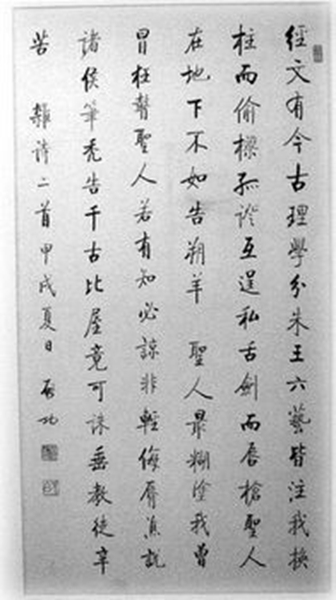 經文有今古理學分朱王六藝皆注我換
柱而偷樑孤證互逞私舌劍而唇槍聖人
在地下不如告朔羊 聖人最糊塗我曾
冒狂瞽聖人若有知必諒非輕侮脣焦說
諸侯筆禿告千古比屋竟可誅垂教徒辛
苦 雜詩二首甲戌夏日 啟功